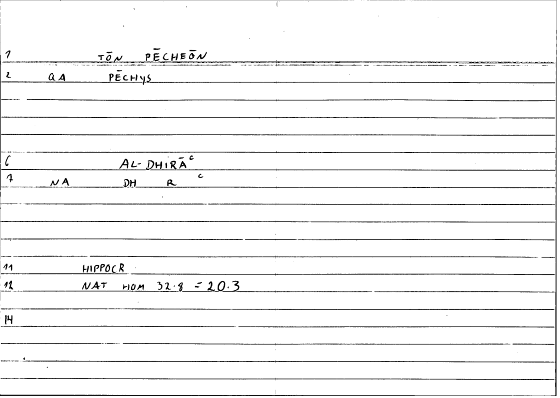 1 TŌN PĒCHEŌN
2 QA PĒCHYS
6 AL-DHIRĀc
7 NA DH R c
11 HIPPOCR
12 NAT HOM 32.8 = 20.3
14